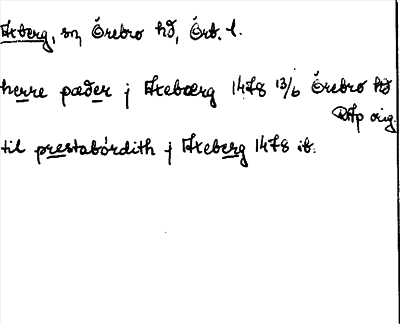 Axberg, sn, Örebro hd, Örb. l.
herre pæder j Axebærg 1478 13/6 Örebro hd
RAp orig.
til prestabórdith j Axeberg 1478 ib.